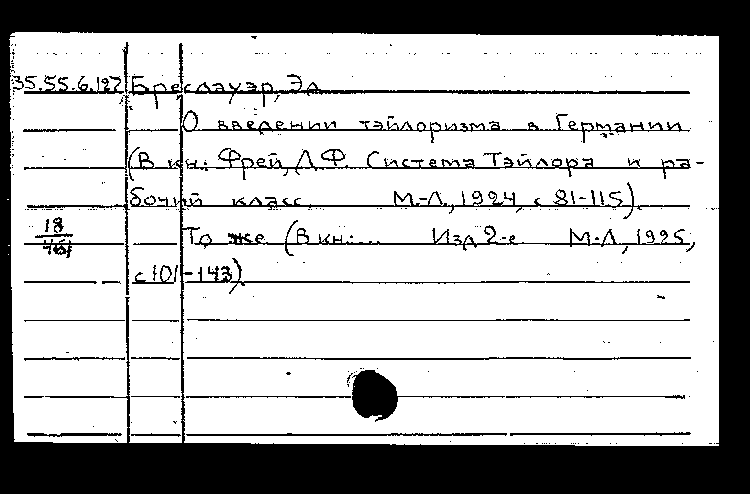 35.55.6.127 Бреслауэр, Эд
О введении тэйлоризма в Германии
(В кн.: Фрей, Л.Ф. Система Тэйлора и ра-
бочий класс. М.-Л., 1924, с 81-115).
18
То же (В кн:... Изд 2-е М.-Л., 1925,
с 101-143).